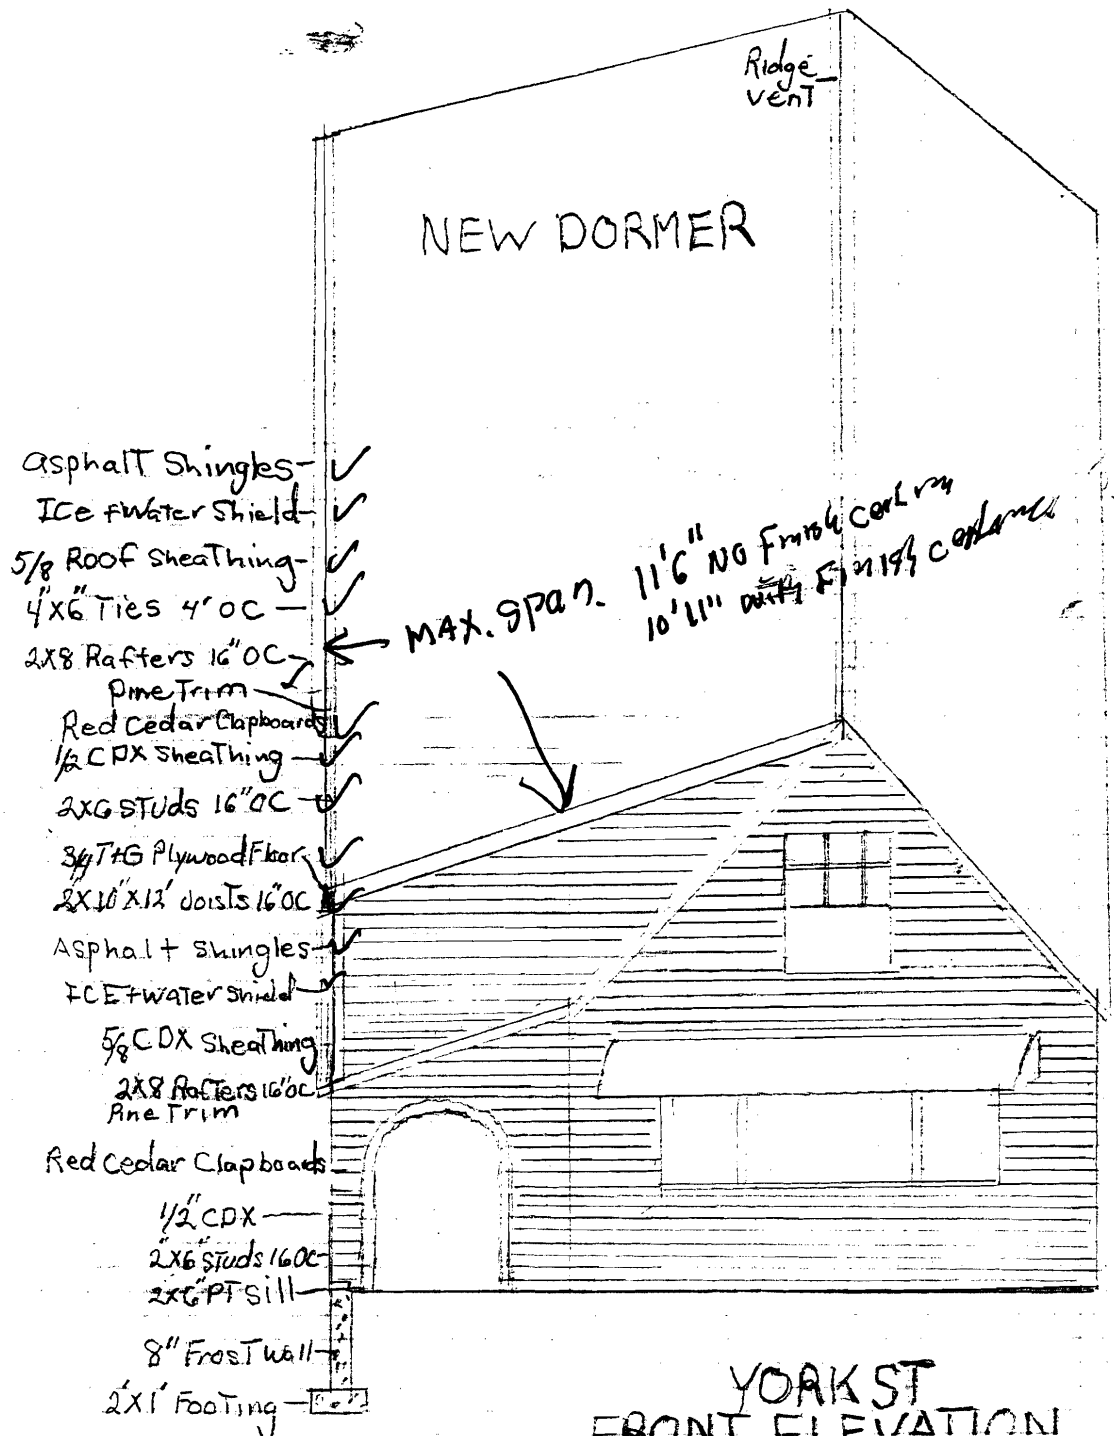 Ridge
vent
NEW DORMER
asphalt Shingles
ICe + Water Shield
5/8 Roof Sheathing
4"x6" Ties 4' OC
2x8 Rafters 16" OC
Pine Trim
Red Cedar Clapboards
1/2 CDX Sheathing
2x6 STUDS 16" OC
3/4 T+G Plywood Floor
2"x10"x12' Joists 16" OC
Asphalt shingles
ICE + water shield
5/8 CDX Sheathing
2x8 Rafters 16" OC
Pine Trim
Red Cedar Clapboards
1/2" CDX
2"x6" STUDS 16 OC
2x6" PT Sill
8" Frost wall
2'x1' Footing
MAX. Span. 11'6" NO Finish
10'11" with Finish
YORK ST
FRONT ELEVATION